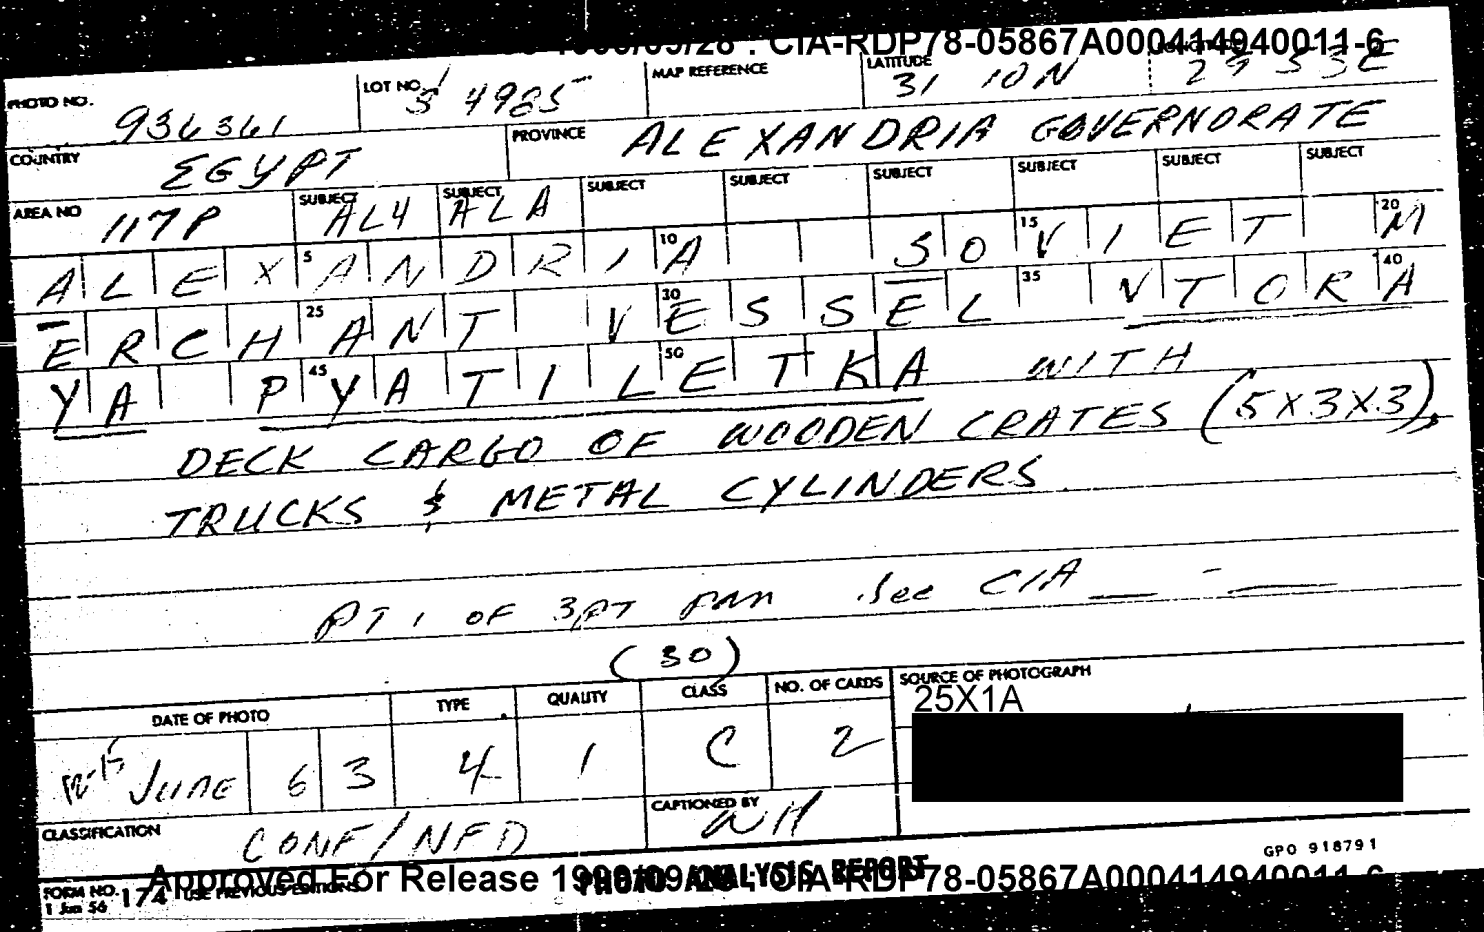 1998/09/28 : CIA-RDP78-05867A000414940011-6
PHOTO NO. 936361 LOT NO. 34985 MAP REFERENCE LATITUDE 31 10N 29 53E
COUNTRY EGYPT PROVINCE ALEXANDRIA GOVERNORATE
AREA NO 117P SUBJECT AL4 SUBJECT ALA SUBJECT SUBJECT SUBJECT SUBJECT SUBJECT SUBJECT
ALEXANDRIA SOVIET M
5 10 15 20
ERCHANT VESSEL VTORA
25 30 35 40
YA PYATILETKA WITH
45 50
DECK CARGO OF WOODEN CRATES (5X3X3),
TRUCKS & METAL CYLINDERS
PT 1 OF 3PT PAN See CIA __ - __
(30)
DATE OF PHOTO TYPE QUALITY CLASS NO. OF CARDS SOURCE OF PHOTOGRAPH
25X1A
June 63 4 1 C 2
CLASSIFICATION CONF/NFD CAPTIONED BY WH
GPO 918791
FORM NO. 1 Jan 56 174 USE PREVIOUS EDITIONS PHOTO ANALYSIS REPORT
Approved For Release 1998/09/28 : CIA-RDP78-05867A000414940011-6